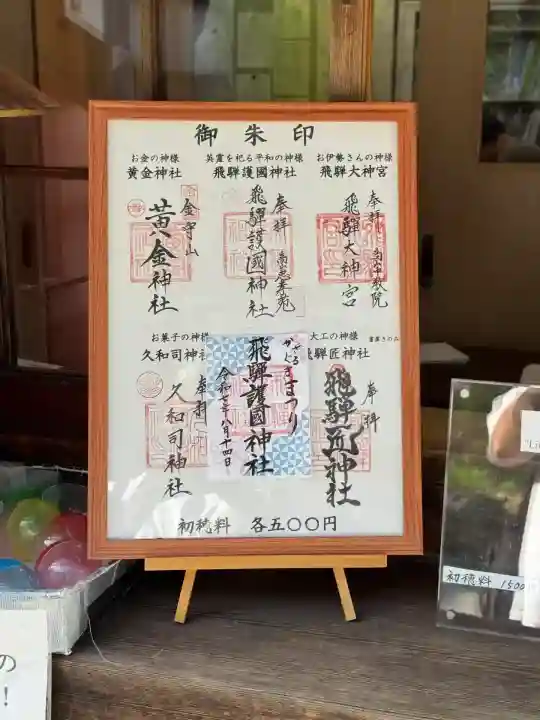 御朱印
お金の神様
黄金神社
英霊を祀る平和の神様
飛騨護國神社
お伊勢さんの神様
飛騨大神宮
金守山
黄金神社
奉拝
飛騨護國神社
奉拝
飛騨大神宮
お菓子の神様
久和司神社
大工の神様
書置きのみ
飛騨匠神社
奉拝
久和司神社
まつり
飛騨護國神社
令和七年八月十四日
奉拝
飛騨匠神社
初穂料 各五〇〇円
初穂料 1500
の
!